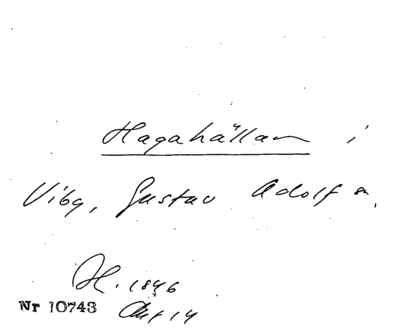 Hagahällan i
Viby, Gustav Adolf s.
H. 1846
Nr 10743